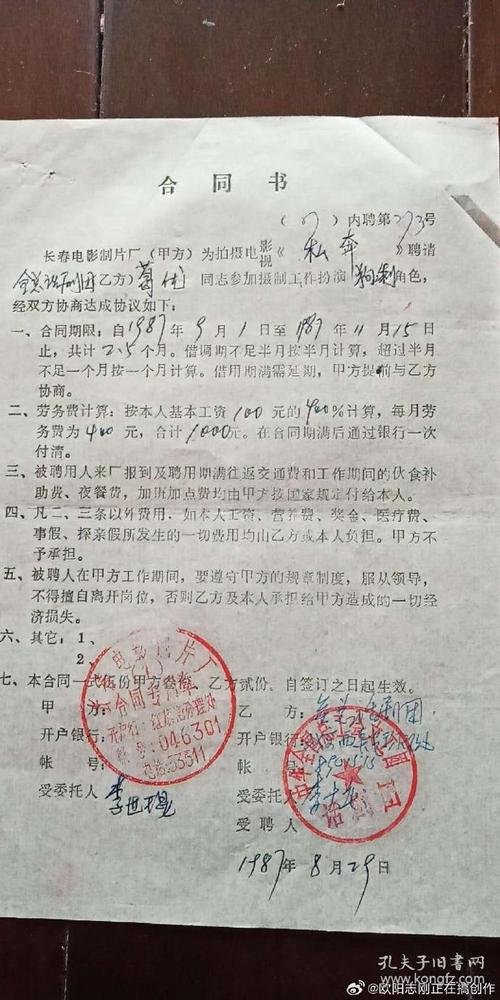 合同书
(87)内聘第273号
长春电影制片厂(甲方)为拍摄电影视《私奔》聘请
全总话剧团(乙方)葛优同志参加摄制工作扮演狗剩角色,
经双方协商达成协议如下:
一、合同期限:自1987年9月1日至1987年11月15日
止,共计2.5个月。借调期不足半月按半月计算,超过半月
不足一个月按一个月计算。借用期满需延期,甲方提前与乙方
协商。
二、劳务费计算:按本人基本工资100元的400%计算,每月劳
务费为400元,合计1000元。在合同期满后通过银行一次
付清。
三、被聘用人来厂报到及聘用期满往返交通费和工作期间的伙食补
助费、夜餐费,加班加点费均由甲方按国家规定付给本人。
四、凡二、三条以外费用,如本人工资、营养费、奖金、医疗费、
事假、探亲假所发生的一切费用均由乙方或本人负担。甲方不
予承担。
五、被聘人在甲方工作期间,要遵守甲方的规章制度,服从领导,
不得擅自离开岗位,否则乙方及本人承担给甲方造成的一切经
济损失。
六、其它:1、
2、
七、本合同一式伍份甲方叁份,乙方贰份,自签订之日起生效。
甲方:
乙方:全总话剧团
开户银行:
开户银行:
帐号:
帐号:
受委托人
受委托人
李世
受聘人
长春电影制片厂
合同专用章
046301
电话:53311
话剧团
1987年8月29日
孔夫子旧书网
@欧阳志刚正在搞创作